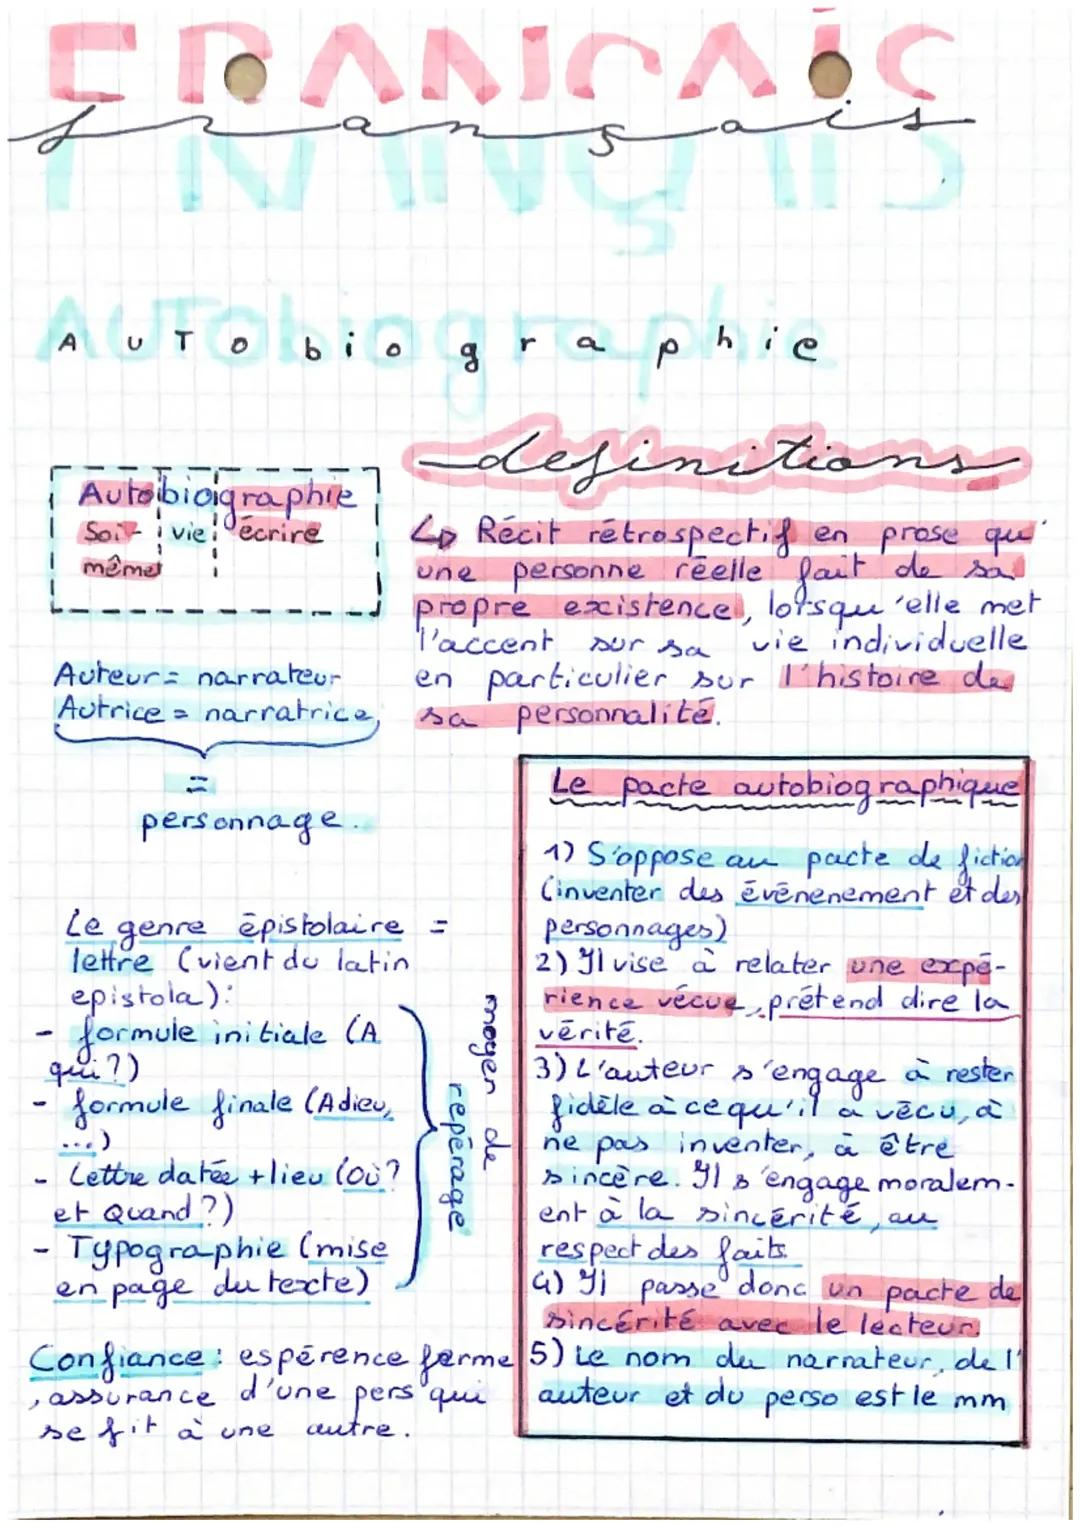 FRANCAIS
français
FRANÇAIS
AUTObiographie
AUTObiographie
définitions
Autobiographie
Soi- vie écrire
même
↳ Récit rétrospectif en prose qu'
une personne réelle fait de sa
propre existence, lorsqu'elle met
l'accent sur sa vie individuelle
en particulier sur l'histoire de
sa personnalité.
Auteur = narrateur
Autrice = narratrice
=
personnage.
Le genre épistolaire =
lettre (vient du latin
epistola):
- formule initiale (A
qui?)
- formule finale (Adieu,
...)
- Lettre datée + lieu (Où?
et Quand?)
- Typographie (mise
en page du texte)
moyen de
repérage
Confiance: espérence ferme
, assurance d'une pers qui
se fit à une autre.
Le pacte autobiographique
1) S'oppose au pacte de fiction
(inventer des événenement et des
personnages)
2) Il vise à relater une expé-
rience vécue, prétend dire la
vérité.
3) L'auteur s'engage à rester
fidèle à ce qu'il a vécu, à
ne pas inventer, à être
sincère. Il s'engage moralem-
ent à la sincérité, au
respect des faits
4) Il passe donc un pacte de
sincérité avec le lecteur.
5) Le nom du narrateur, de l'
auteur et du perso est le mm